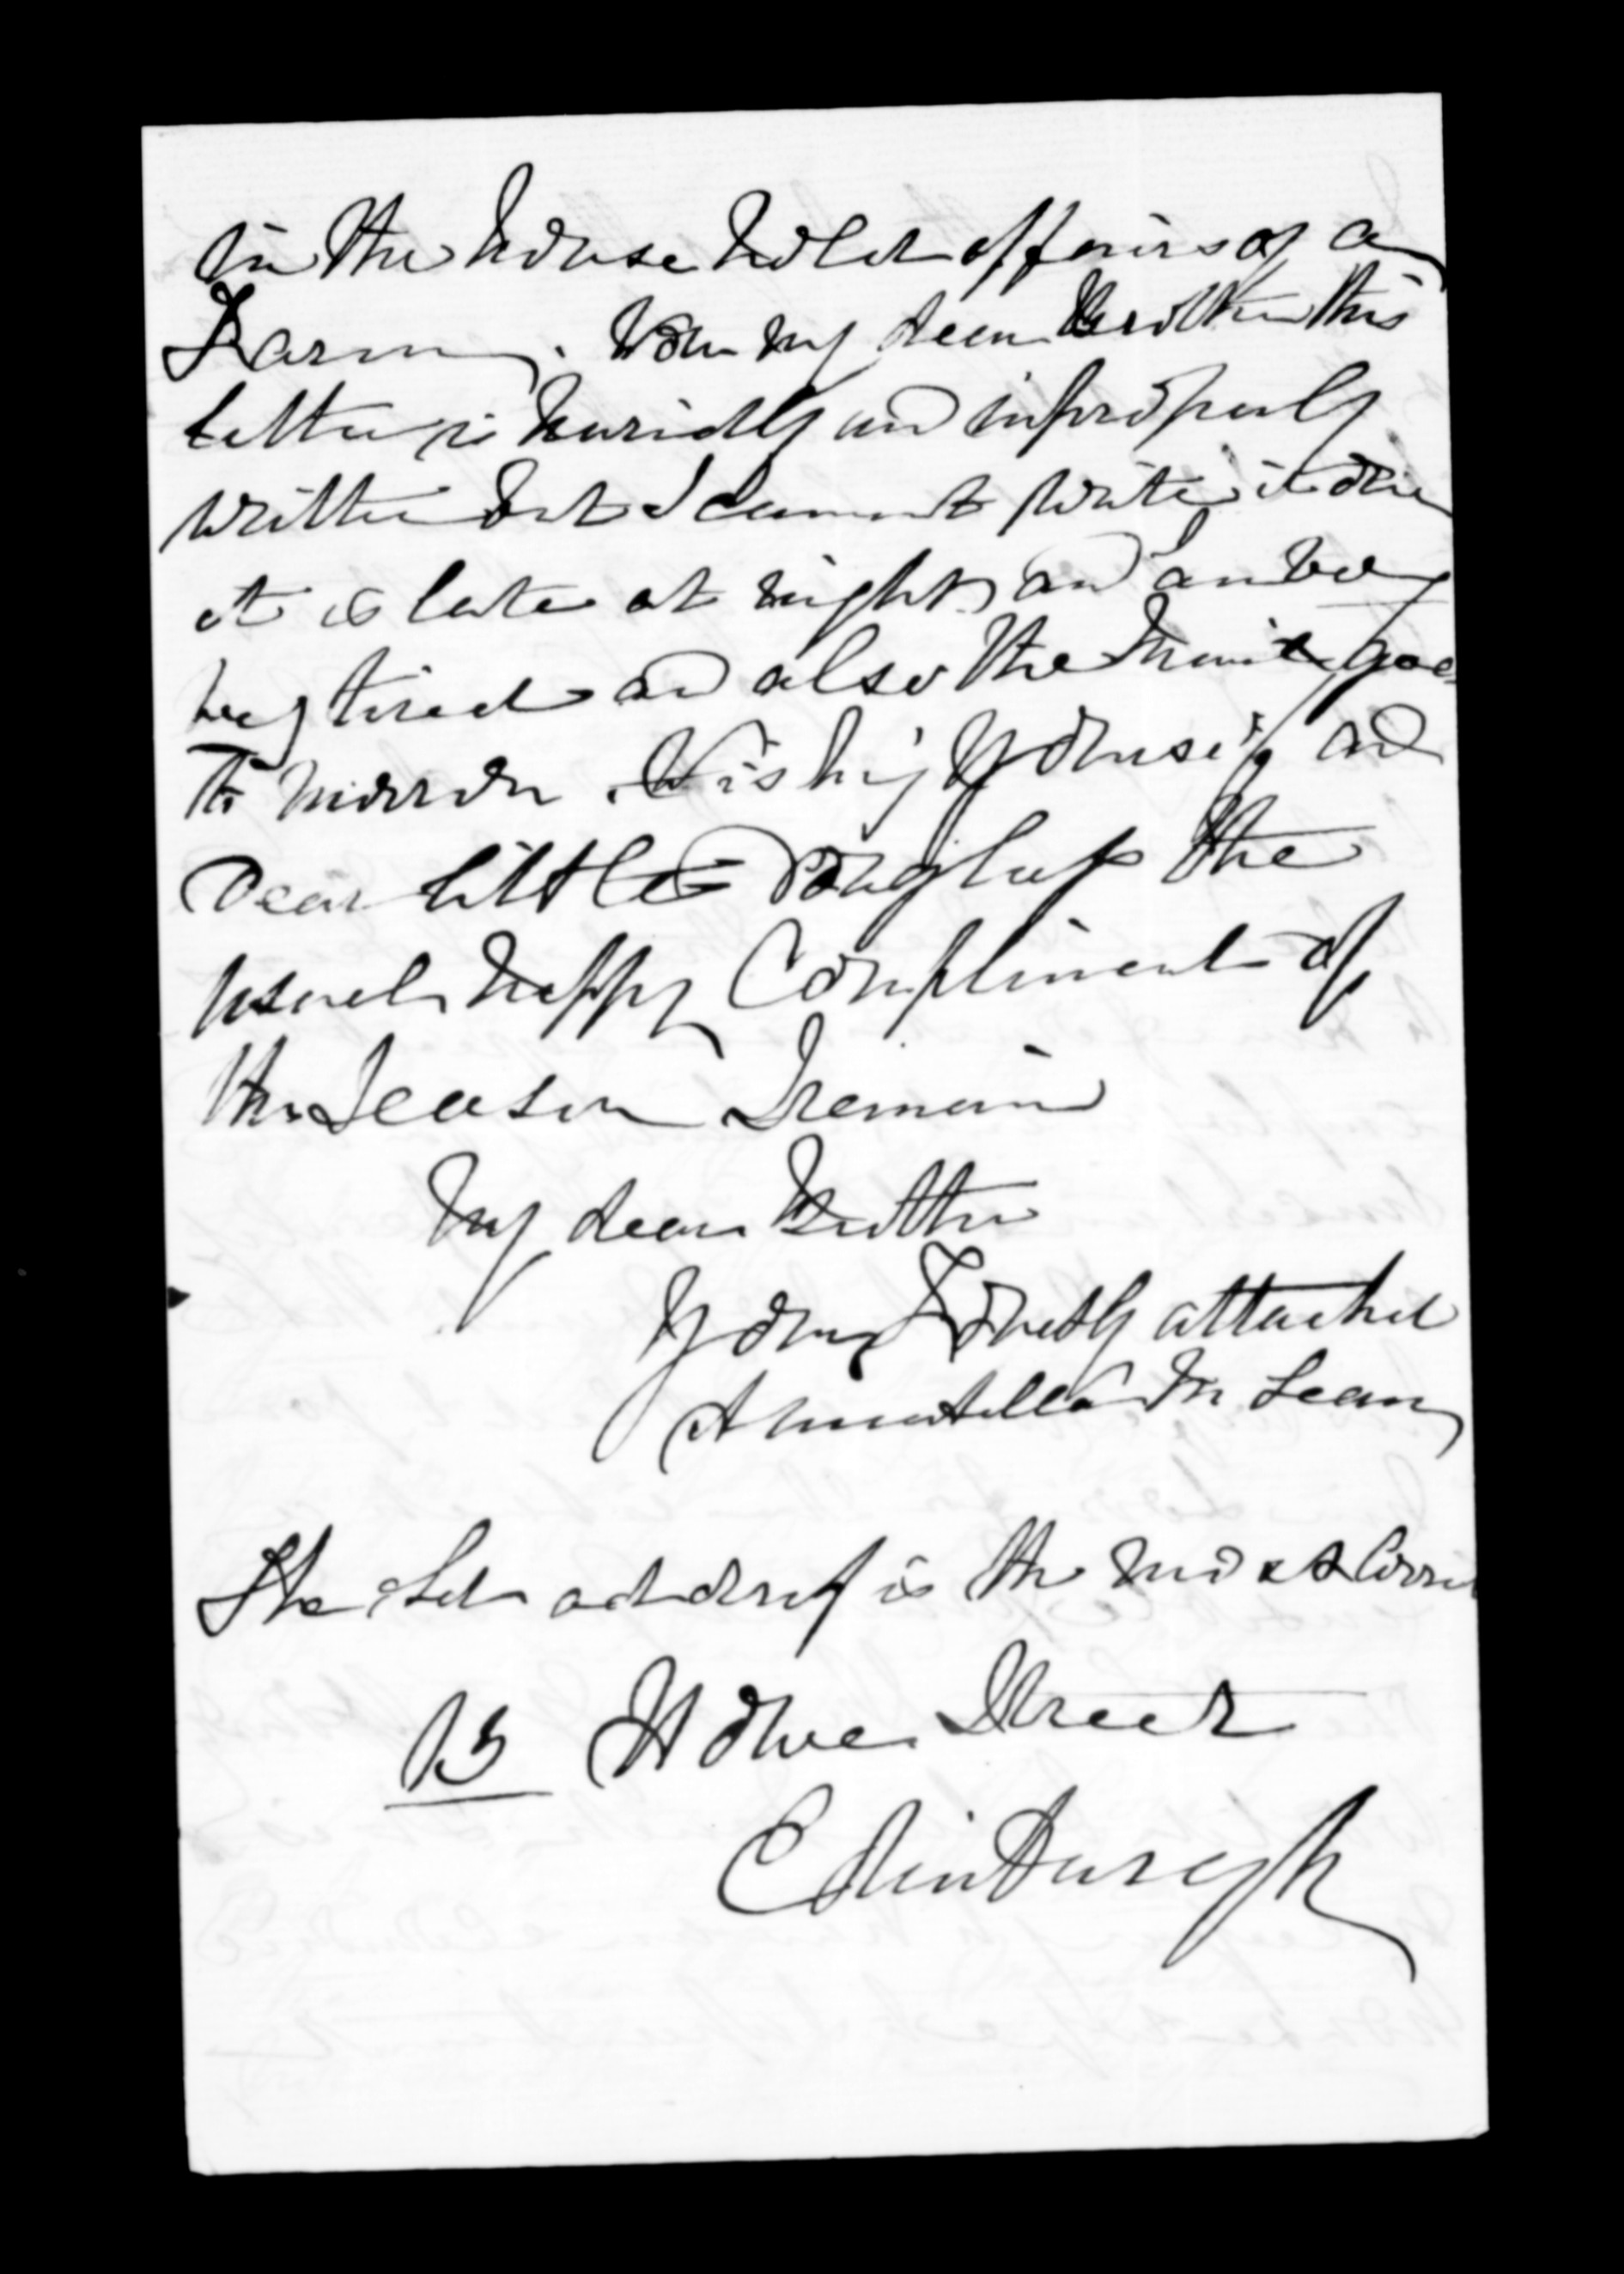 in the household affairs of a
Farm. Now my dear Brother this
letter is hurridly and inproperly
written but I cannot write it over
it is late at night and I am very
very tired and also the Mail goes
To morrow. Wishing Yourself and
Dear little Douglass the
usual happy Compliments of
the Season I remain
My dear Brother
Yours Fondly attached
Annabella McLean
The Old address is the most Corre
13 Howe Street
Edinburgh